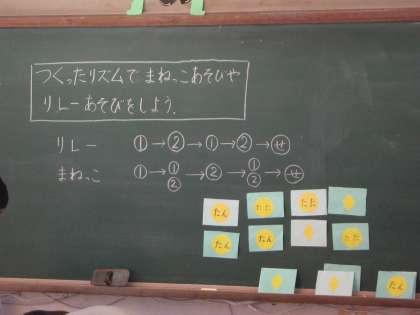 つくったリズムで まねっこあそびや
リレーあそびをしよう。
リレー ①→②→①→②→㋝
まねっこ ①→①②→②→①②→㋝
たん たた たた
たん たん たた
たん